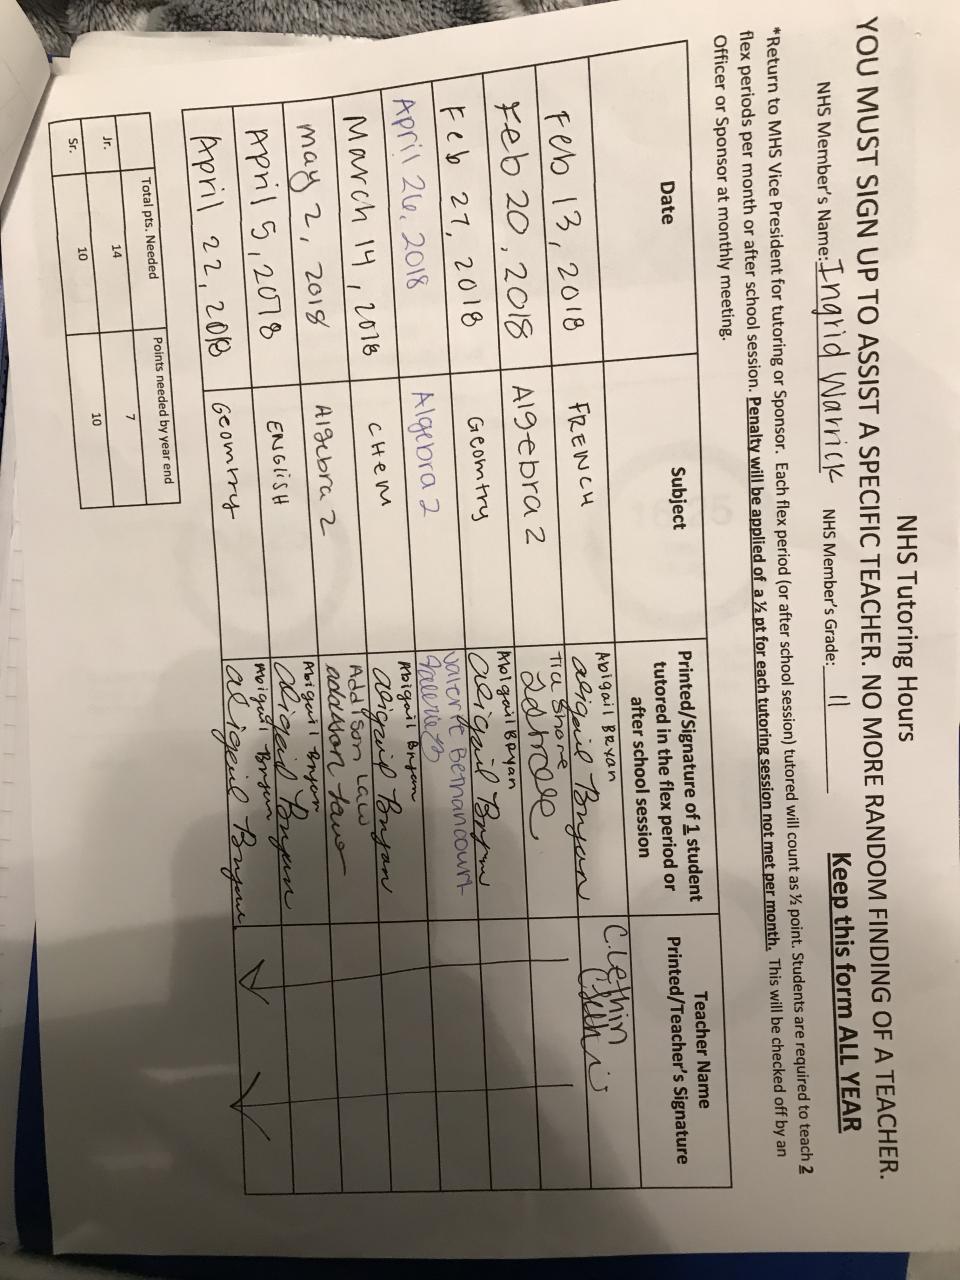 NHS Tutoring Hours
YOU MUST SIGN UP TO ASSIST A SPECIFIC TEACHER. NO MORE RANDOM FINDING OF A TEACHER.
NHS Member's Name: Ingrid Warrick NHS Member's Grade: 11 Keep this form ALL YEAR
*Return to MHS Vice President for tutoring or Sponsor. Each flex period (or after school session) tutored will count as ½ point. Students are required to teach 2
flex periods per month or after school session. Penalty will be applied of a ½ pt for each tutoring session not met per month. This will be checked off by an
Officer or Sponsor at monthly meeting.
Date Subject Printed/Signature of 1 student tutored in the flex period or after school session Teacher Name Printed/Teacher's Signature
Feb 13, 2018 FRENCH Abigail Bryan C. Lethin
Abigail Bryan
Feb 20, 2018 Algebra 2 Tia Shore
Feb 27, 2018 Geomtry Abigail Bryan
Abigail Bryan
April 26, 2018 Algebra 2 Valerie
March 14, 2018 CHEM Abigail Bryan
Abigail Bryan
may 2, 2018 Algebra 2 Addison Law
addison Law
April 5, 2018 ENGLISH Abigail Bryan
Abigail Bryan
April 22, 2018 Geomtry Abigail Bryan
Abigail Bryan
Total pts. Needed Points needed by year end
Jr. 14 7
Sr. 10 10